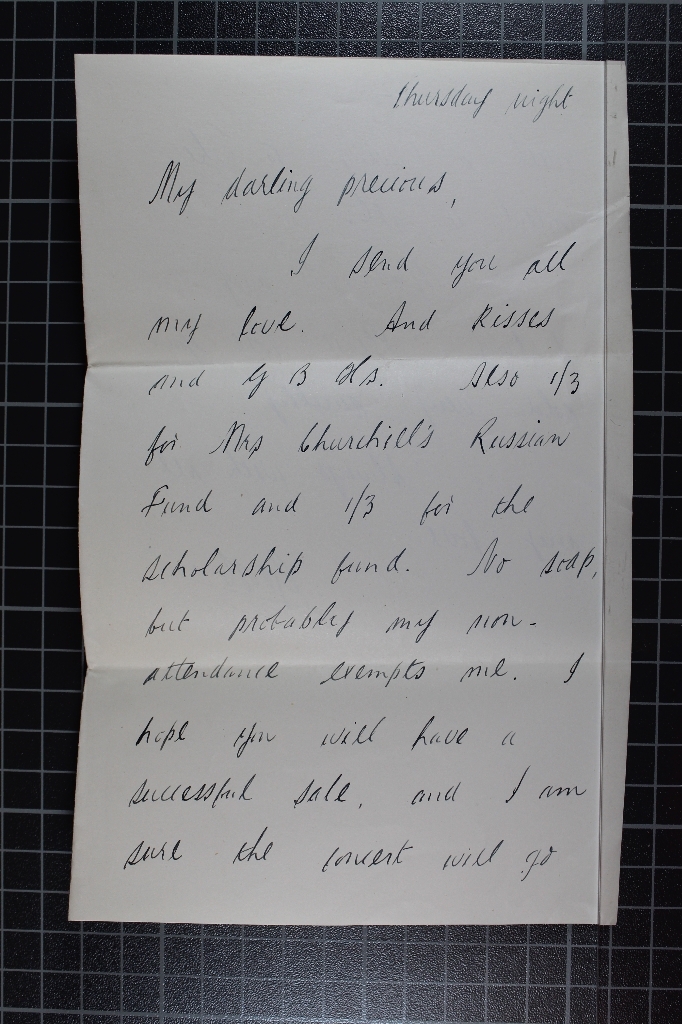 Thursday night
My darling precious,
I send you all
my love. And kisses
and G B Hs. Also 1/3
for Mrs Churchill's Russian
Fund and 1/3 for the
scholarship fund. No soap,
but probably my non-
attendance exempts me. I
hope you will have a
successful sale, and I am
sure the concert will go